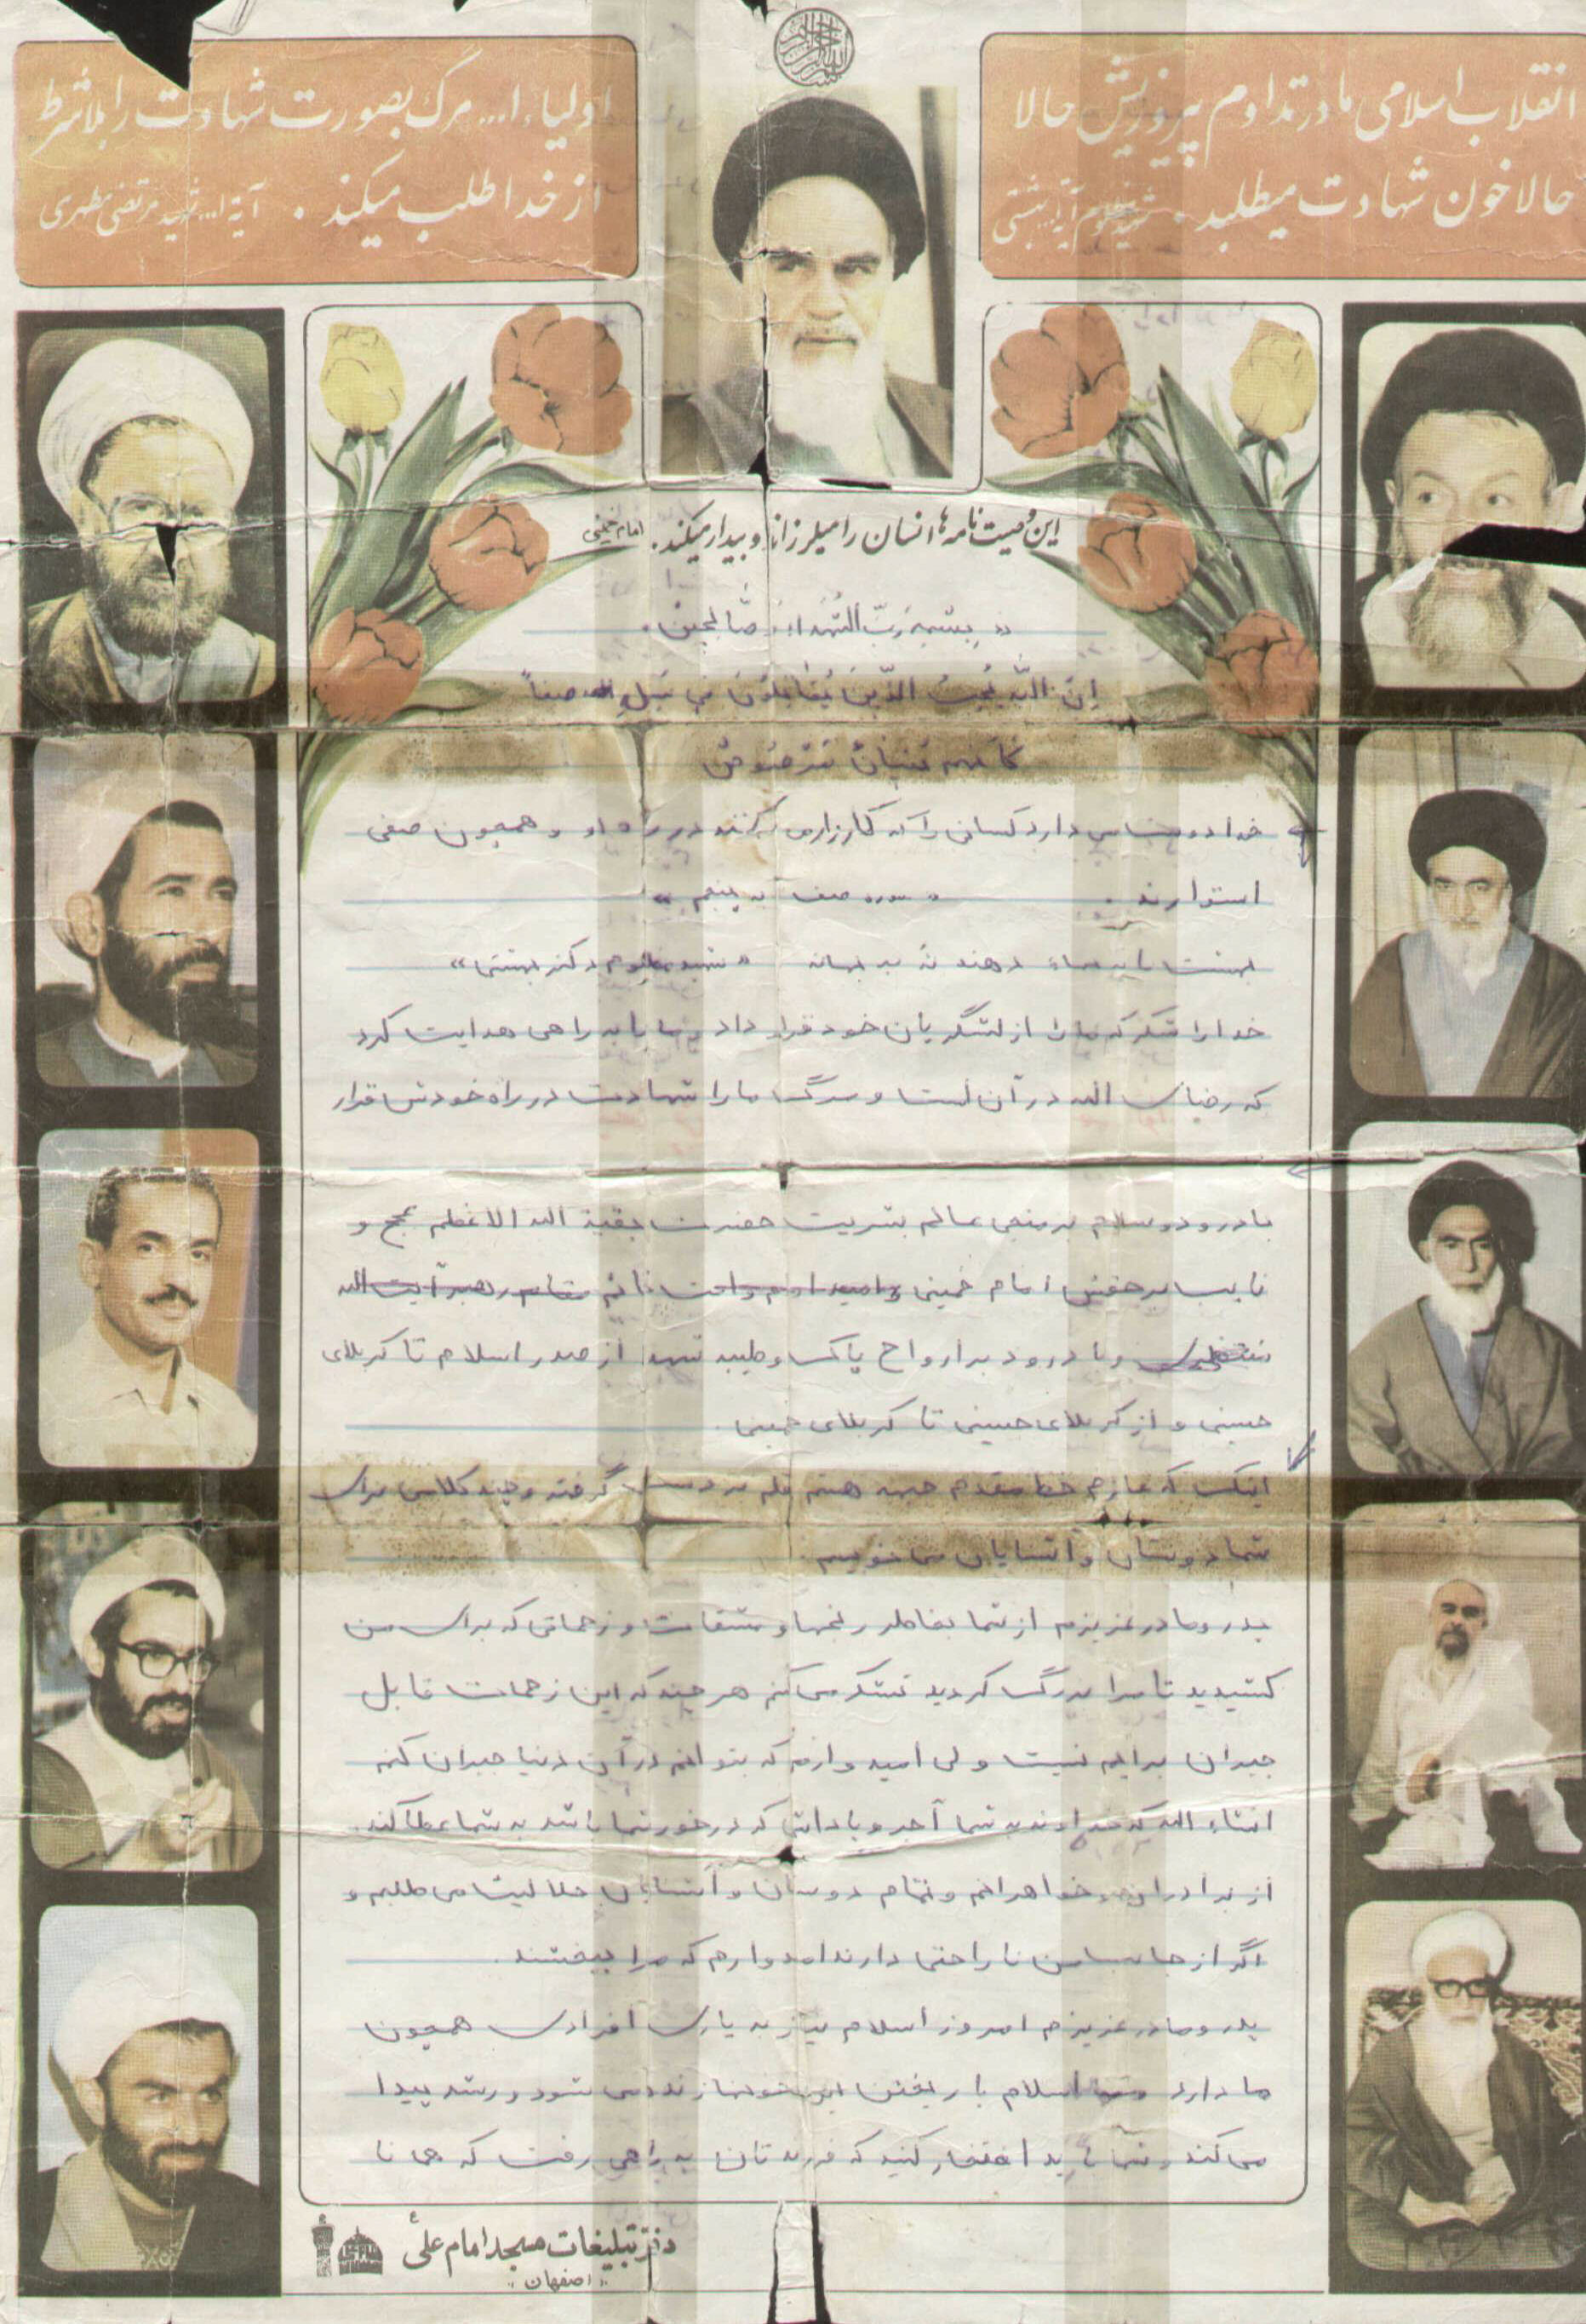 انقلاب اسلامی ما در تداوم پیروزیش حالا
حالا خون شهادت میطلبد. شهید مظلوم آیة ا... بهشتی
اولیاء ا... مرگ بصورت شهادت را بلاشرط
از خدا طلب میکند. آیة ا... شهید مرتضی مطهری
این وصیت نامه ها انسان را میلرزاند و بیدار میکند. امام خمینی
بسمه رب الشهداء و صالحین
ان الله یحب الذین یقاتلون فی سبیل الله صفاً
کانهم بنیان مرصوص
خدا دوست می دارد کسانی را که کارزار می کنند در راه او و همچون صفی
استوارند. «سوره صف آیه پنجم»
بهشت را به بهاء دهند نه به بهانه «شهید مظلوم دکتر بهشتی»
خدا را شکر که ما را از لشگریان خود قرار داد و ما را به راهی هدایت کرد
که رضای الله در آن است و مرگ ما را شهادت در راه خودش قرار
با درود و سلام بر منجی عالم بشریت حضرت بقیة الله الاعظم عج و
نایب بر حقش امام خمینی و امید امت و امت قائم مقام رهبر آیت الله
منتظری و با درود بر ارواح پاک و طیبه شهدا از صدر اسلام تا کربلای
حسینی و از کربلای حسینی تا کربلای خمینی.
اینک که عازم خط مقدم جبهه هستم قلم بر دست گرفته و چند کلامی برای
شما دوستان و آشنایان می نویسم.
پدر و مادر عزیزم از شما بخاطر رنجها و مشقات و زحماتی که برای من
کشیدید تا مرا بزرگ کردید تشکر می کنم هر چند که این زحمات قابل
جبران برایم نیست ولی امیدوارم که بتوانم در آن دنیا جبران کنم
انشاء الله که خداوند به شما آجر و پاداشی که در خور شما باشد به شما عطا کند.
از برادران و خواهرانم و تمام دوستان و آشنایان حلالیت می طلبم و
اگر از جانب من ناراحتی دارند امیدوارم که مرا ببخشند.
پدر و مادر عزیزم امروز اسلام نیاز به یاری افرادی همچون
ما دارد اسلام با ریختن این خونها زنده می شود و رشد پیدا
می کند و شما باید افتخار کنید که فرزندتان به راهی رفت که همانا
دفتر تبلیغات مسجد امام علی ع
«اصفهان»